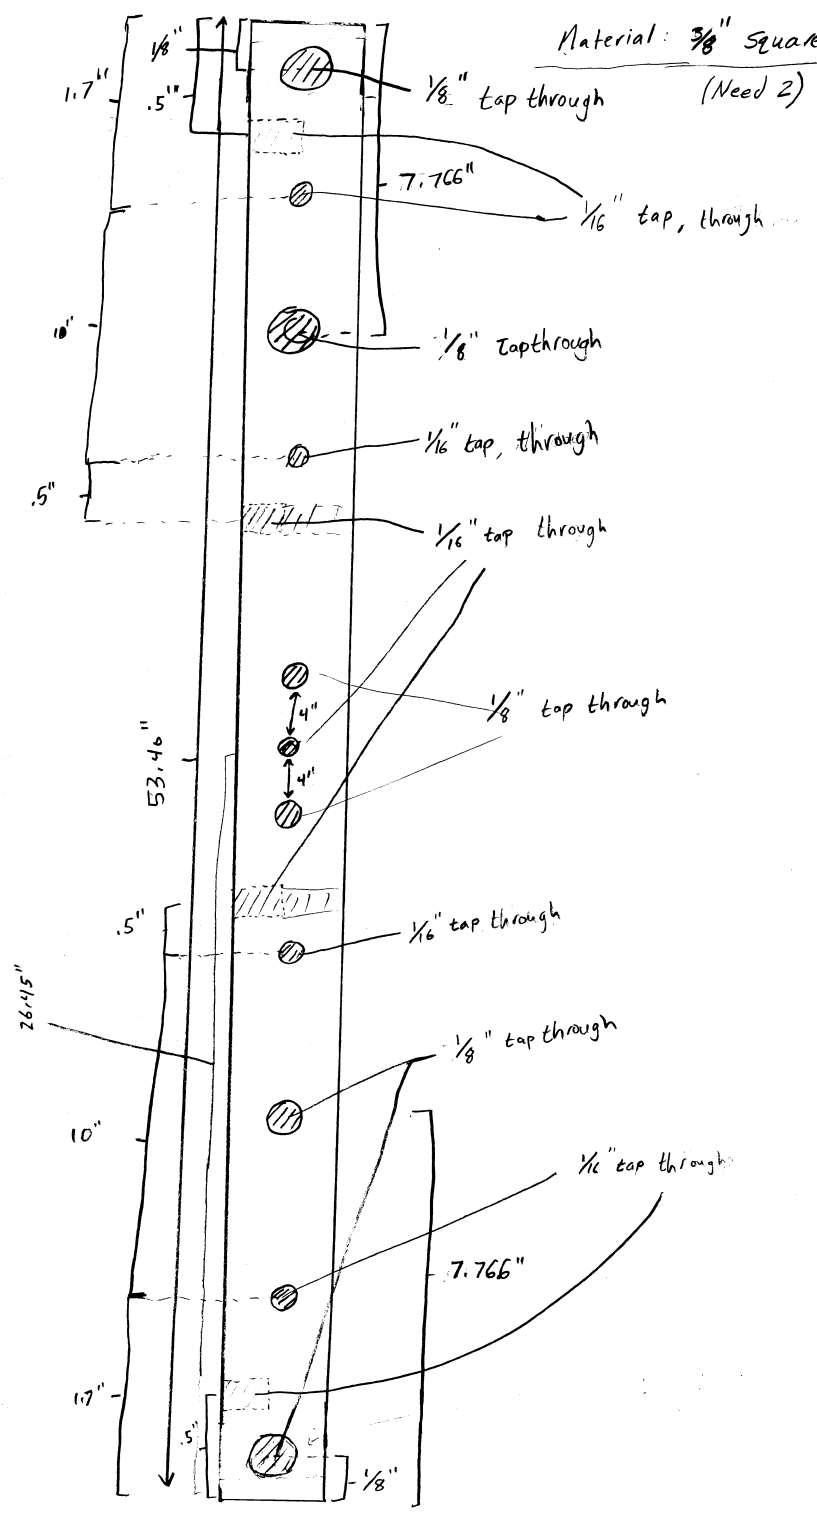 Material: 3/8" Square
(Need 2)
1/8"
1.7"
.5"
1/8" tap through
7.766"
1/16" tap, through
10"
1/8" Tapthrough
1/16" tap, through
.5"
1/16" tap through
4"
1/8" tap through
53.40"
4"
.5"
1/16" tap through
26.45"
1/8" tap through
10"
1/16" tap through
7.766"
1.7"
.5"
1/8"